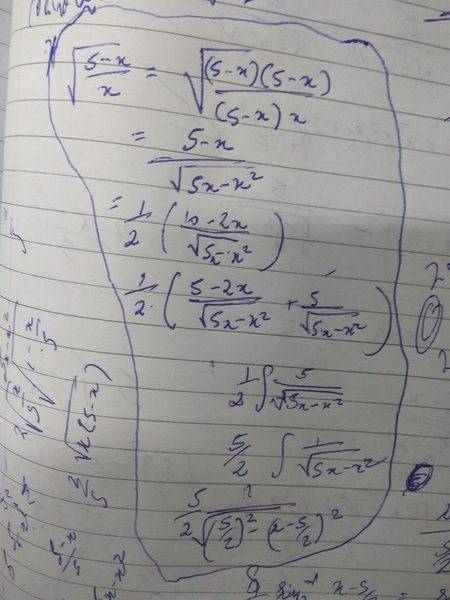 √((5-x)/x) = √((5-x)(5-x)/((5-x)x))
= (5-x)/√(5x-x²)
= 1/2 ((10-2x)/√(5x-x²))
1/2 ((5-2x)/√(5x-x²) + 5/√(5x-x²))
1/2 ∫ 5/√(5x-x²)
5/2 ∫ 1/√(5x-x²)
5/2 1/√((5/2)² - (x-5/2)²)
√x(5-x)
sin⁻¹ x-5/